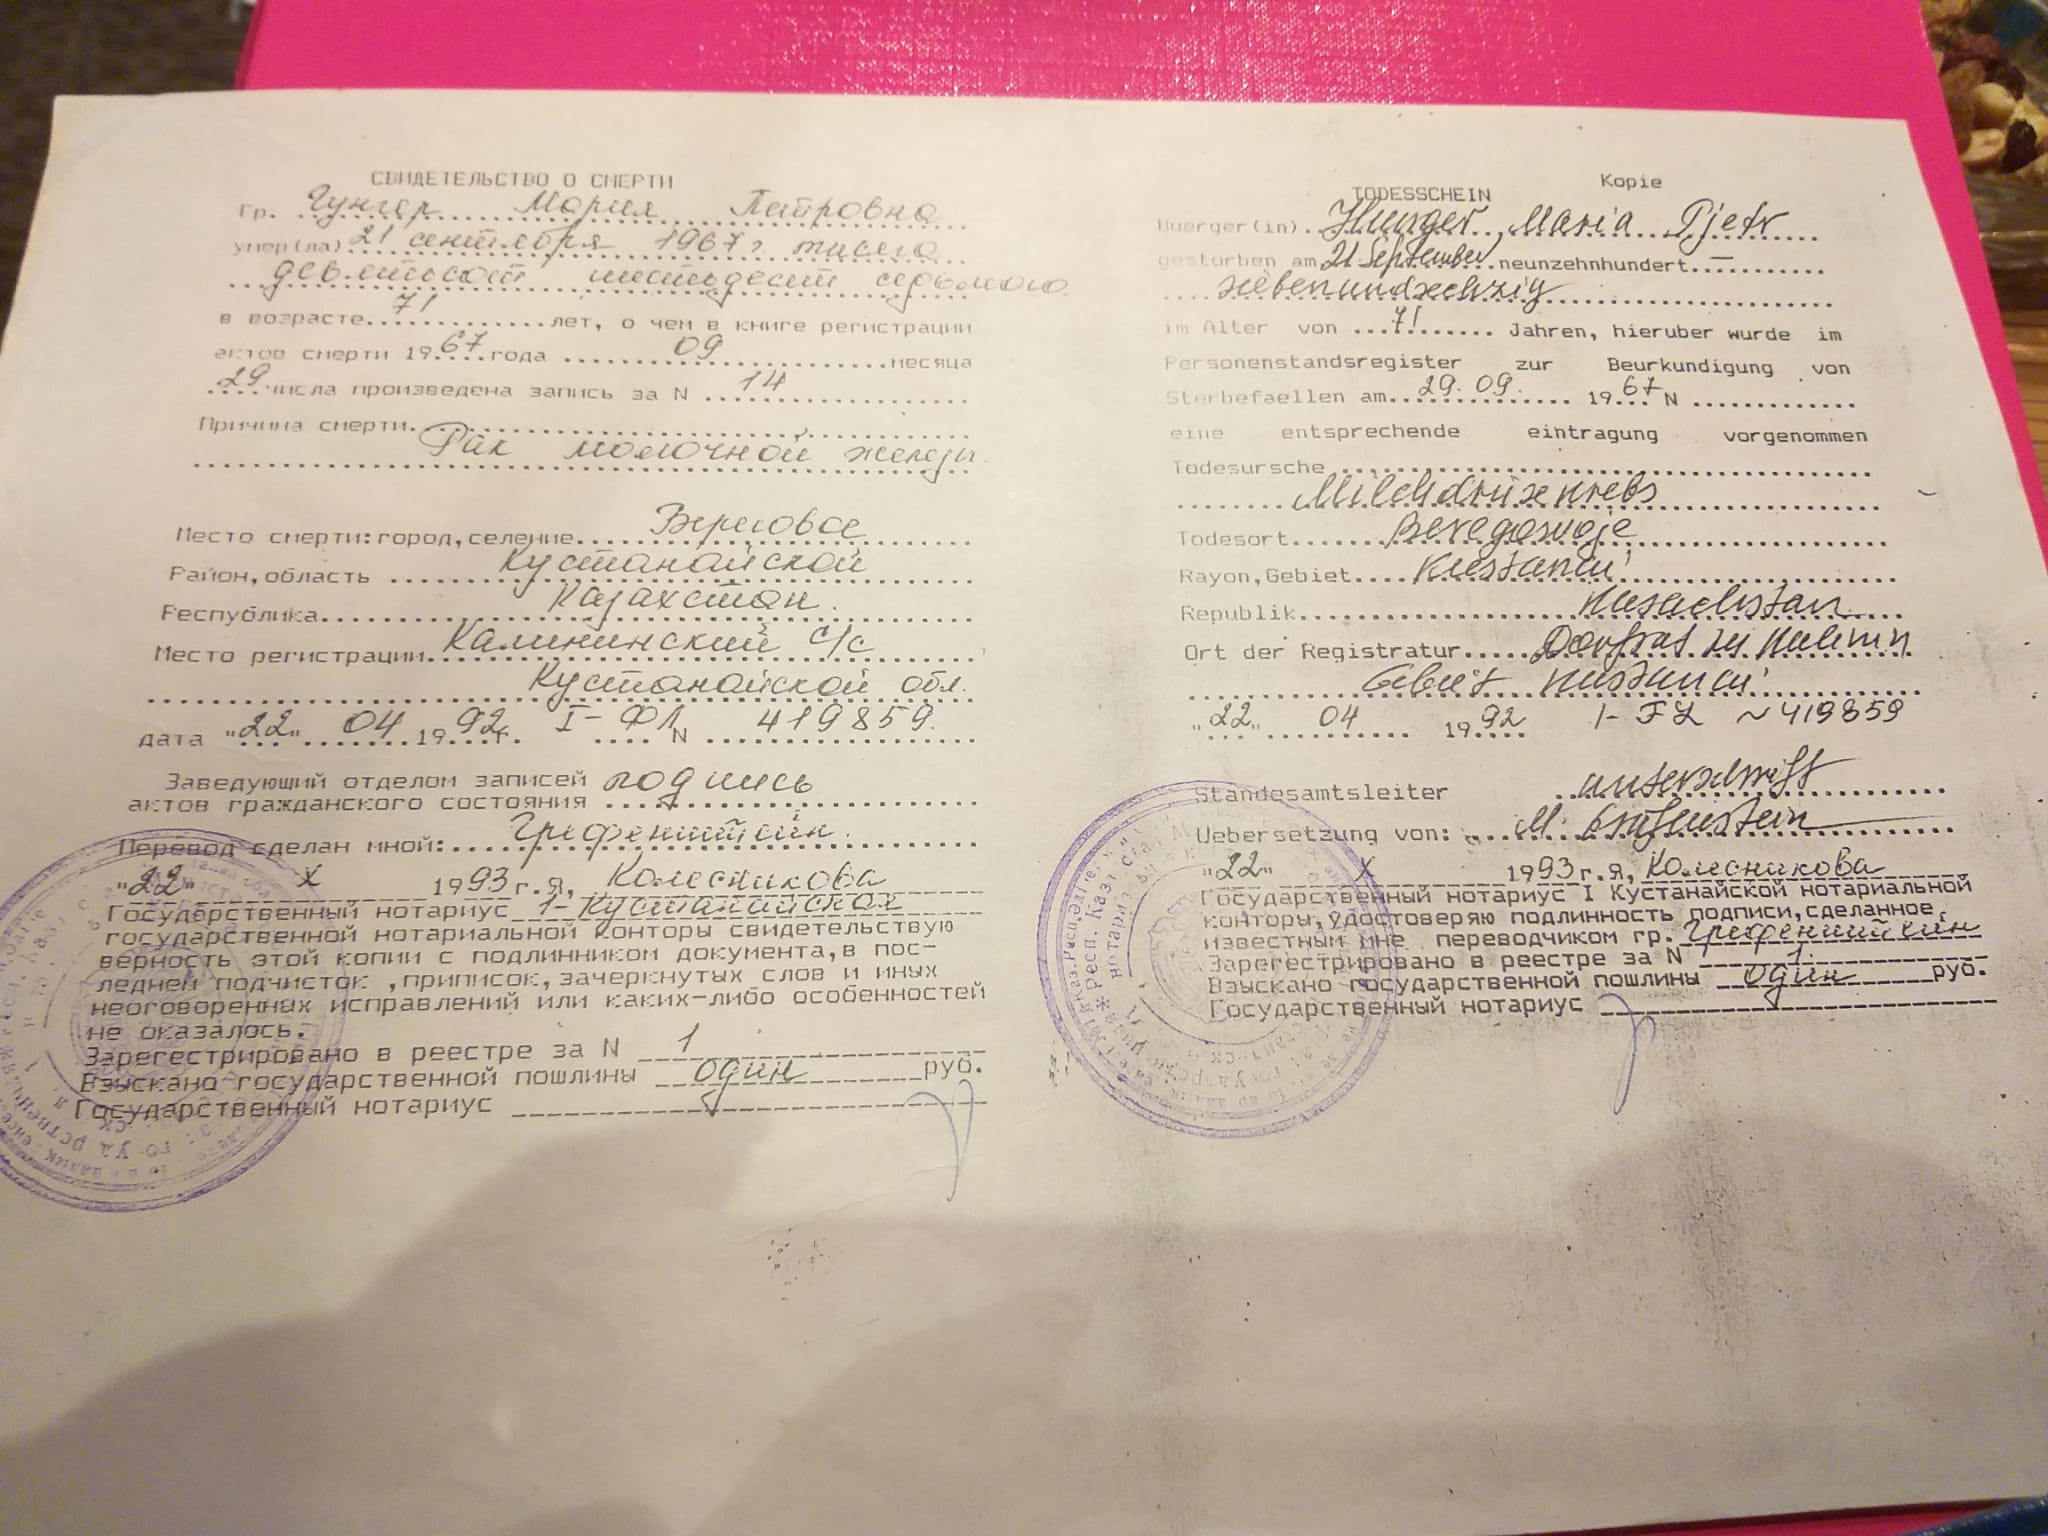 СВИДЕТЕЛЬСТВО О СМЕРТИ
Гр. Гунгер Мария Петровна
умер(ла) 21 сентября 1967 г. тисяго
девятьсот шестьдесят седьмого
в возрасте 71 лет, о чем в книге регистрации
актов смерти 1967 года 09 месяца
29 числа произведена запись за N 14
Причина смерти
Рак молочной железы
Место смерти: город, селение Береговое
Район, область Кустанайской
Республика Казахстан.
Место регистрации Калининский с/с
Кустанайской обл.
дата "22" 04 1992 г. I-ФЛ N 419859.
Заведующий отделом записей подпись
актов гражданского состояния
Перевод сделан мной: Грефенштейн.
"22" X 1993 г. Я, Колесникова
Государственный нотариус 1-Кустанайской
государственной нотариальной конторы свидетельствую
верность этой копии с подлинником документа, в пос-
ледней подчисток ,приписок, зачеркнутых слов и иных
неоговоренных исправлений или каких-либо особенностей
не оказалось.
Зарегестрировано в реестре за N 1
Взыскано государственной пошлины один руб.
Государственный нотариус
Kopie
TODESSCHEIN
Buerger(in) Hunger Maria Pjetr
gestorben am 21 September neunzehnhundert
siebenundsechzig
im Alter von 71 Jahren, hieruber wurde im
Personenstandsregister zur Beurkundigung von
Sterbefaellen am 29.09. 1967 N
eine entsprechende eintragung vorgenommen
Todesursche
Milchdrüsenkrebs
Todesort Beregowoje
Rayon, Gebiet Kustanai
Republik Kasachstan
Ort der Registratur Dorfrat zu Kalinin
Gebiet Kustanai
"22" 04 1992 I-FL ~ 419859
Standesamtsleiter unterschrift
Uebersetzung von: M. Gräfenstein
"22" X 1993 г. Я, Колесникова
Государственный нотариус I Кустанайской нотариальной
конторы, удостоверяю подлинность подписи, сделанное
известным мне переводчиком гр. Грефенштейн
Зарегестрировано в реестре за N 1
Взыскано государственной пошлины один руб.
Государственный нотариус